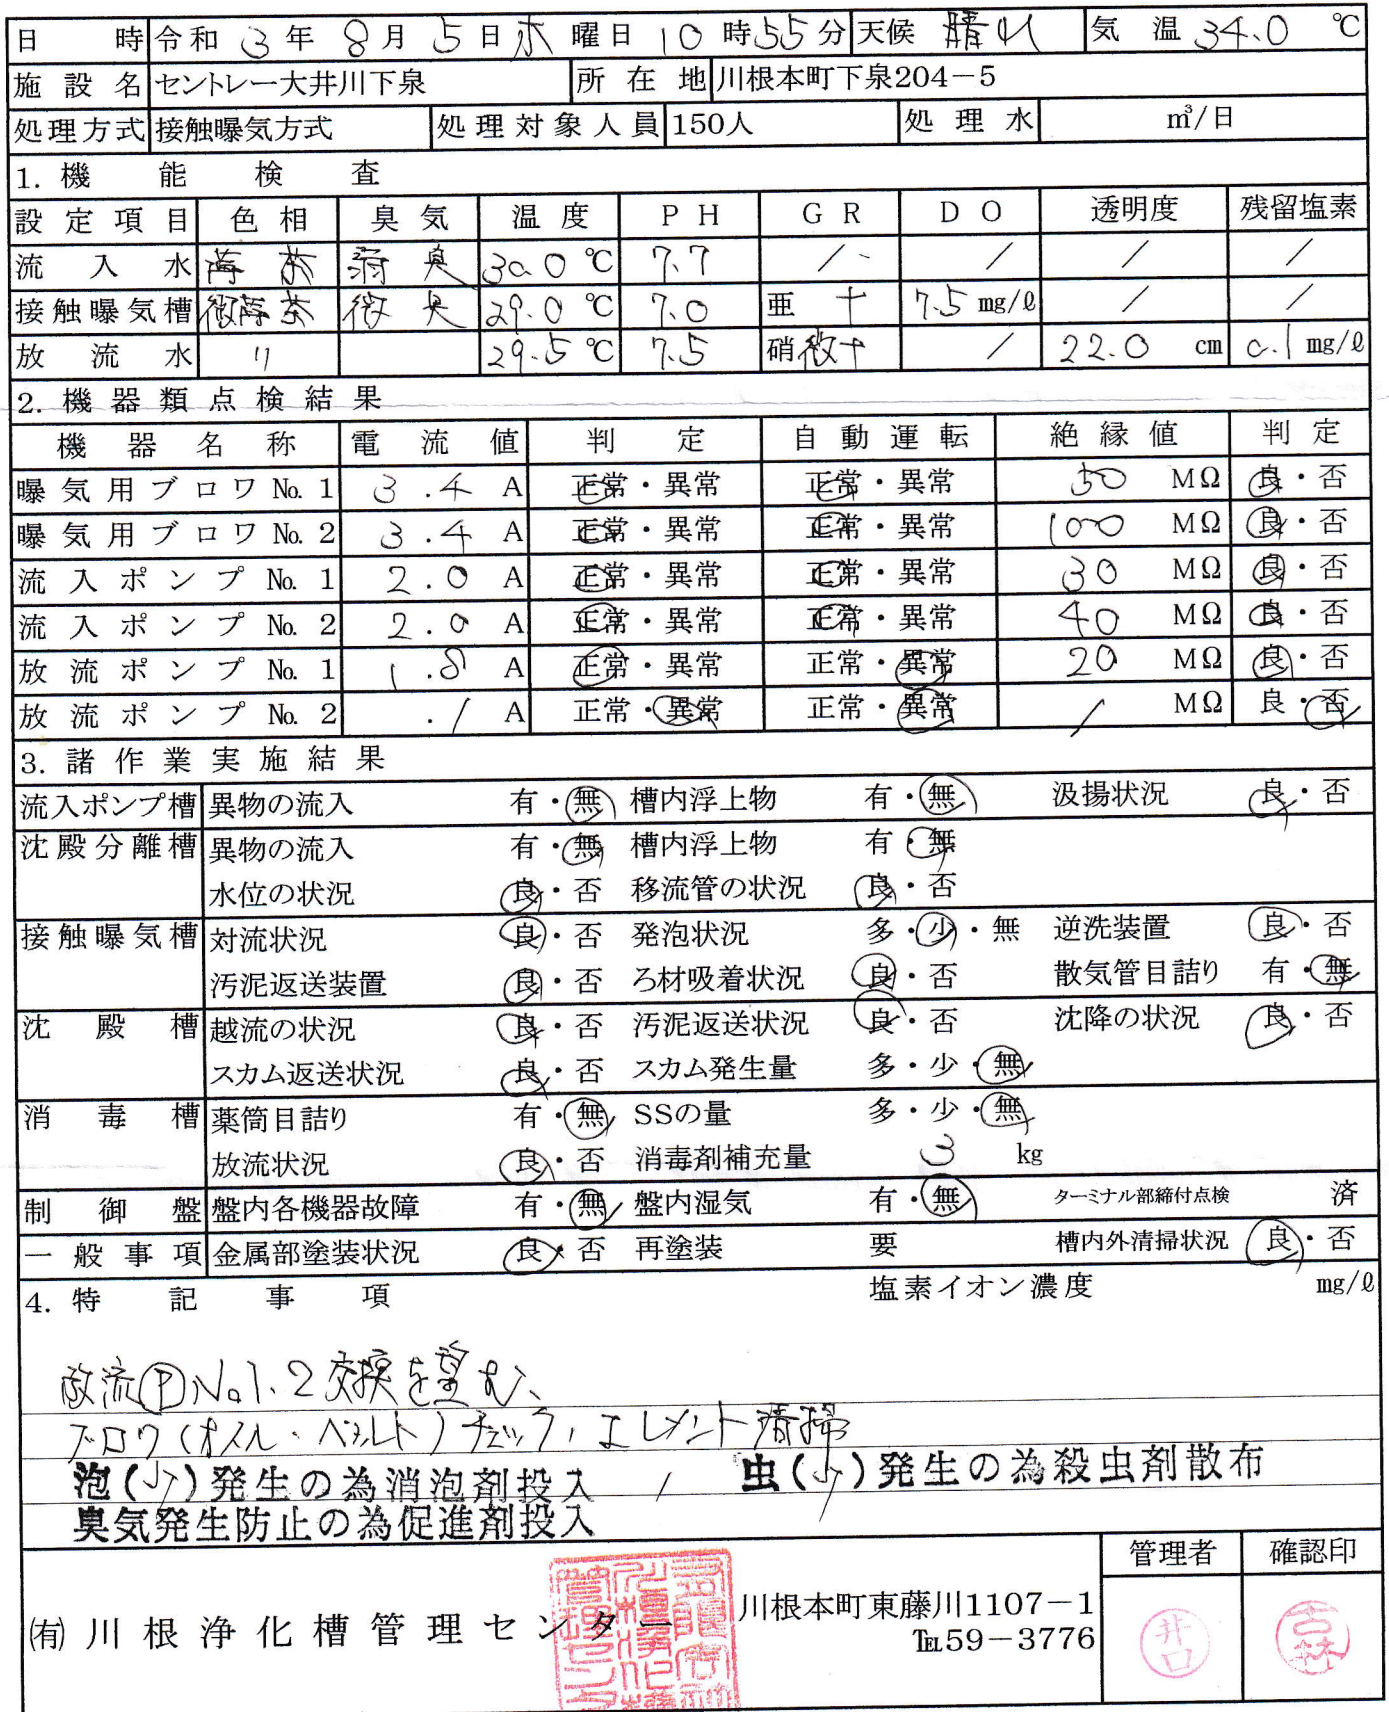 日 時 令和 3 年 8 月 5 日 木 曜日 10 時 55 分 天候 晴れ 気温 34.0 ℃
施設名 セントレー大井川下泉 所在地 川根本町下泉204－5
処理方式 接触曝気方式 処理対象人員 150人 処理水 ㎥/日
1. 機能検査
設定項目 色相 臭気 温度 PH GR DO 透明度 残留塩素
流入水 30.0 ℃ 7.7 / / / /
接触曝気槽 微薄茶 微臭 29.0 ℃ 7.0 亜 + 7.5 mg/ℓ / /
放流水 〃 29.5 ℃ 7.5 硝 微+ / 22.0 cm 0.1 mg/ℓ
2. 機器類点検結果
機器名称 電流値 判定 自動運転 絶縁値 判定
曝気用ブロワ№1 3.4 A 正常・異常 正常・異常 50 MΩ 良・否
曝気用ブロワ№2 3.4 A 正常・異常 正常・異常 100 MΩ 良・否
流入ポンプ№1 2.0 A 正常・異常 正常・異常 30 MΩ 良・否
流入ポンプ№2 2.0 A 正常・異常 正常・異常 40 MΩ 良・否
放流ポンプ№1 1.8 A 正常・異常 正常・異常 20 MΩ 良・否
放流ポンプ№2 ./ A 正常・異常 正常・異常 / MΩ 良・否
3. 諸作業実施結果
流入ポンプ槽 異物の流入 有・無 槽内浮上物 有・無 汲揚状況 良・否
沈殿分離槽 異物の流入 有・無 槽内浮上物 有・無
水位の状況 良・否 移流管の状況 良・否
接触曝気槽 対流状況 良・否 発泡状況 多・少・無 逆洗装置 良・否
汚泥返送装置 良・否 ろ材吸着状況 良・否 散気管目詰り 有・無
沈殿槽 越流の状況 良・否 汚泥返送状況 良・否 沈降の状況 良・否
スカム返送状況 良・否 スカム発生量 多・少・無
消毒槽 薬筒目詰り 有・無 SSの量 多・少・無
放流状況 良・否 消毒剤補充量 3 kg
制御盤 盤内各機器故障 有・無 盤内湿気 有・無 ターミナル部締付点検 済
一般事項 金属部塗装状況 良・否 再塗装 要 槽内外清掃状況 良・否
4. 特記事項 塩素イオン濃度 mg/ℓ
放流Ⓟ No1.2 交換を望む、
ブロワ(オイル・ベルト)チェック, エレメント清掃
泡(少)発生の為消泡剤投入 / 虫(少)発生の為殺虫剤散布
臭気発生防止の為促進剤投入
管理者 確認印
㈲川根浄化槽管理センター 川根本町東藤川1107－1
℡59－3776
井口 吉林